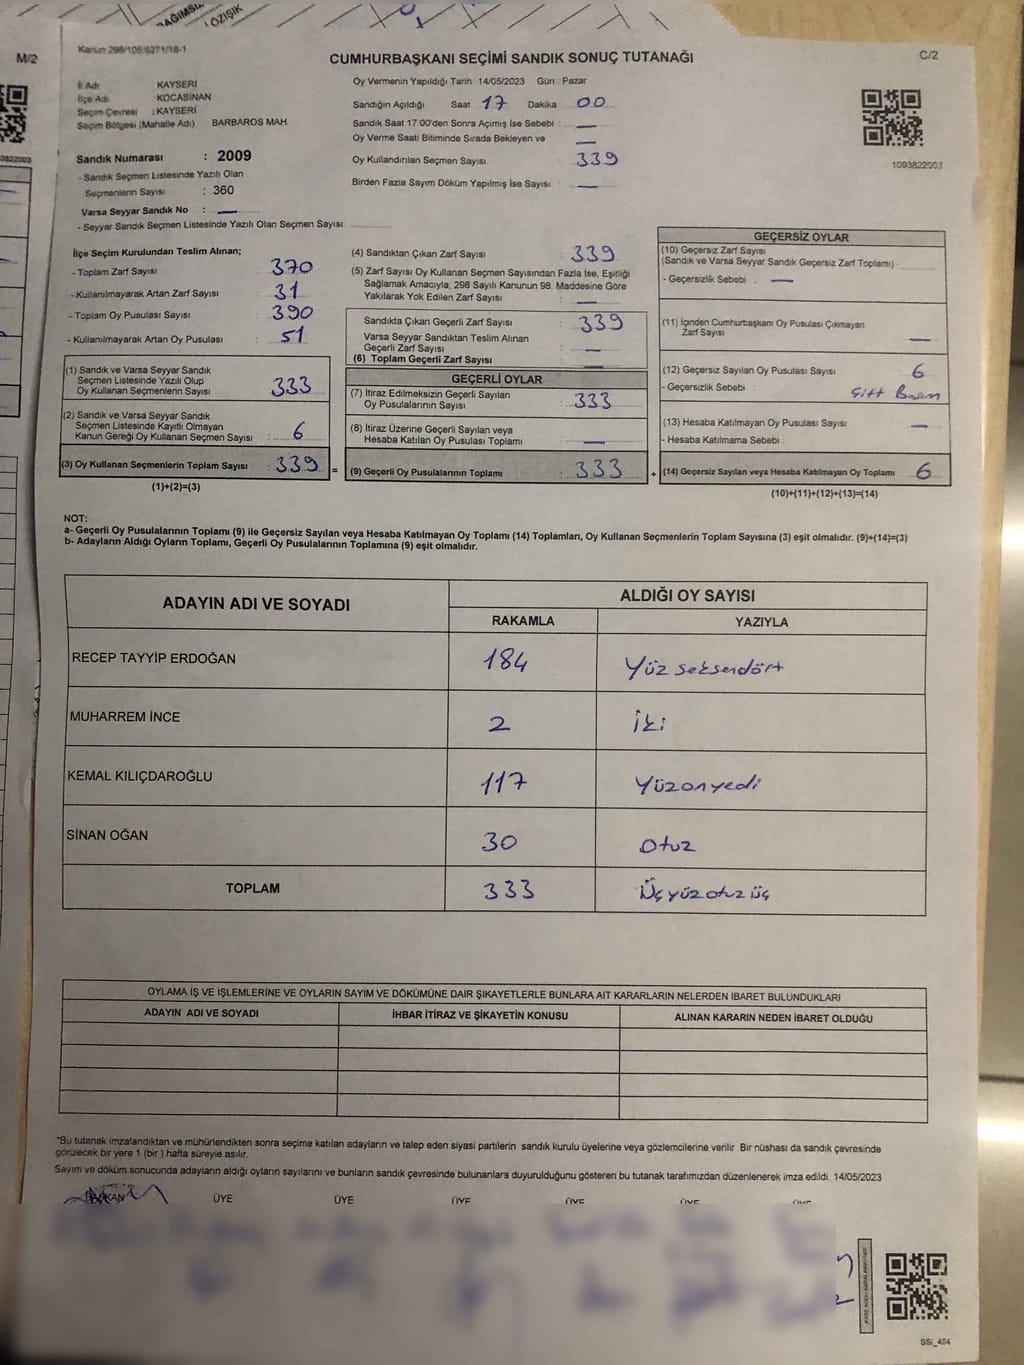 BAĞIMSIZ
ÖZIŞIK
M/2
Kanun 298/105,6271/18-1
CUMHURBAŞKANI SEÇİMİ SANDIK SONUÇ TUTANAĞI
C/2
İl Adı KAYSERİ
İlçe Adı : KOCASİNAN
Seçim Çevresi : KAYSERİ
Seçim Bölgesi (Mahalle Adı) BARBAROS MAH.
Oy Vermenin Yapıldığı Tarih 14/05/2023 Gün : Pazar
Sandığın Açıldığı Saat 17 Dakika : 00
Sandık Saat 17:00'den Sonra Açımış İse Sebebi : —
Oy Verme Saati Bitiminde Sırada Bekleyen ve —
Oy Kullandırılan Seçmen Sayısı 339
Birden Fazla Sayım Döküm Yapılmış İse Sayısı : —
1093822003
Sandık Numarası : 2009
- Sandık Seçmen Listesinde Yazılı Olan
Seçmenlerin Sayısı : 360
Varsa Seyyar Sandık No : —
- Seyyar Sandık Seçmen Listesinde Yazılı Olan Seçmen Sayısı:
İlçe Seçim Kurulundan Teslim Alınan;
- Toplam Zarf Sayısı : 370
- Kullanılmayarak Artan Zarf Sayısı : 31
- Toplam Oy Pusulası Sayısı : 390
- Kullanılmayarak Artan Oy Pusulası : 51
(1) Sandık ve Varsa Seyyar Sandık
Seçmen Listesinde Yazılı Olup
Oy Kullanan Seçmenlerin Sayısı : 333
(2) Sandık ve Varsa Seyyar Sandık
Seçmen Listesinde Kayıtlı Olmayan
Kanun Gereği Oy Kullanan Seçmen Sayısı : 6
(3) Oy Kullanan Seçmenlerin Toplam Sayısı : 339 =
(1)+(2)=(3)
(4) Sandıktan Çıkan Zarf Sayısı : 339
(5) Zarf Sayısı Oy Kullanan Seçmen Sayısından Fazla İse, Eşitliği
Sağlamak Amacıyla; 298 Sayılı Kanunun 98. Maddesine Göre
Yakılarak Yok Edilen Zarf Sayısı : —
Sandıkta Çıkan Geçerli Zarf Sayısı : 339
Varsa Seyyar Sandıktan Teslim Alınan
Geçerli Zarf Sayısı : —
(6) Toplam Geçerli Zarf Sayısı : —
GEÇERLİ OYLAR
(7) İtiraz Edilmeksizin Geçerli Sayılan
Oy Pusulalarının Sayısı : 333
(8) İtiraz Üzerine Geçerli Sayılan veya
Hesaba Katılan Oy Pusulası Toplamı : —
(9) Geçerli Oy Pusulalarının Toplamı : 333 +
GEÇERSİZ OYLAR
(10) Geçersiz Zarf Sayısı
(Sandık ve Varsa Seyyar Sandık Geçersiz Zarf Toplamı)
- Geçersizlik Sebebi : —
(11) İçinden Cumhurbaşkanı Oy Pusulası Çıkmayan
Zarf Sayısı —
(12) Geçersiz Sayılan Oy Pusulası Sayısı 6
- Geçersizlik Sebebi Çift Basım
(13) Hesaba Katılmayan Oy Pusulası Sayısı —
- Hesaba Katılmama Sebebi :
(14) Geçersiz Sayılan veya Hesaba Katılmayan Oy Toplamı 6
(10)+(11)+(12)+(13)=(14)
NOT:
a- Geçerli Oy Pusulalarının Toplamı (9) ile Geçersiz Sayılan veya Hesaba Katılmayan Oy Toplamı (14) Toplamları, Oy Kullanan Seçmenlerin Toplam Sayısına (3) eşit olmalıdır. (9)+(14)=(3)
b- Adayların Aldığı Oyların Toplamı, Geçerli Oy Pusulalarının Toplamına (9) eşit olmalıdır.
ADAYIN ADI VE SOYADI
ALDIĞI OY SAYISI
RAKAMLA YAZIYLA
RECEP TAYYİP ERDOĞAN 184 Yüz seksendört
MUHARREM İNCE 2 İki
KEMAL KILIÇDAROĞLU 117 Yüzonyedi
SİNAN OĞAN 30 Otuz
TOPLAM 333 Üçyüzotuzüç
OYLAMA İŞ VE İŞLEMLERİNE VE OYLARIN SAYIM VE DÖKÜMÜNE DAİR ŞİKAYETLERLE BUNLARA AİT KARARLARIN NELERDEN İBARET BULUNDUKLARI
ADAYIN ADI VE SOYADI İHBAR İTİRAZ VE ŞİKAYETİN KONUSU ALINAN KARARIN NEDEN İBARET OLDUĞU
"Bu tutanak imzalandıktan ve mühürlendikten sonra seçime katılan adayların ve talep eden siyasi partilerin sandık kurulu üyelerine veya gözlemcilerine verilir Bir nüshası da sandık çevresinde
görülecek bir yere 1 (bir ) hafta süreyle asılır.
Sayım ve döküm sonucunda adayların aldığı oyların sayılarını ve bunların sandık çevresinde bulunanlara duyurulduğunu gösteren bu tutanak tarafımızdan düzenlenerek imza edildi. 14/05/2023
BAŞKAN ÜYE ÜYE ÜYE ÜYE ÜYE ÜYE
SSI_404